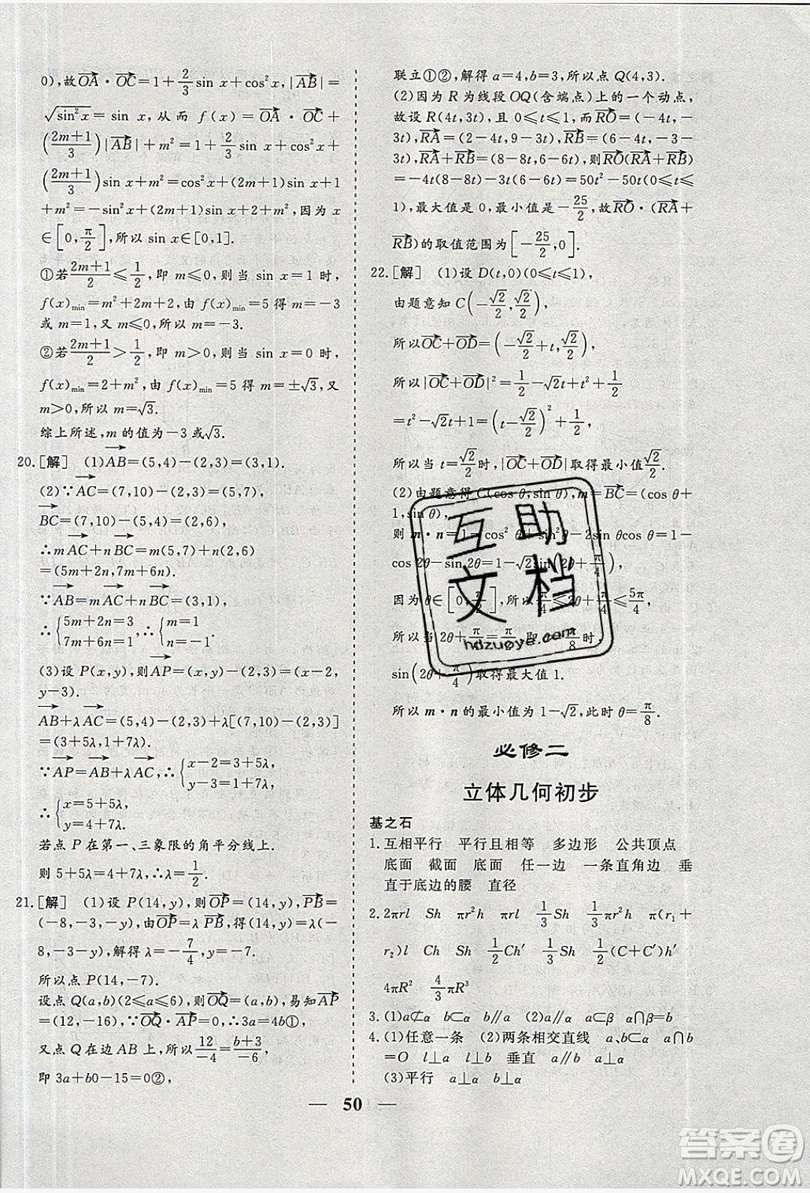 0),故OA·OC=1+2/3 sin x+cos²x,|AB|=
√sin²x=sin x,从而 f(x)=OA·OC+
(2m+1/3)|AB|+m²=1+2/3 sin x+cos²x+
(2m+1/3)sin x+m²=cos²x+(2m+1)sin x+1
+m²=-sin²x+(2m+1)sin x+2+m²,因为 x
∈[0,π/2],所以sin x∈[0,1].
①若2m+1/2≤1/2,即 m≤0,则当 sin x=1 时,
f(x)min=f(x)min=5 得 m=-3
或 m=1,所以 m=-3.
②若2m+1/2>1/2,即 m>0,则当 sin x=0 时,
f(x)min=f(x)min=5 得 m=±√3,又
m>0,所以 m=√3.
综上所述,m的值为-3或√3.
20.[解] (1)AB=(5,4)-(2,3)=(3,1).
(2)∵AC=(7,10)-(2,3)=(5,7),
BC=(7,10)-(5,4)=(2,6),
∴mAC+nBC=m(5,7)+n(2,6)=
(5m+2n,7m+6n).
∵AB=mAC+nBC=(3,1),
∴{5m+2n=3 ∴
7m+6n=1
(3)设P(x,y),则AP=(x,y)-(2,3)=(x-2,
y-3).
AB+λAC=(5,4)-(2,3)+λ[(7,10)-(2,3)]
=(3,1)+λ(5,7)=(3+5λ,1+7λ).
∵AP=AB+λAC,∴{x-2=3+5λ
y-3=1+7λ
∴{x=5+5λ
y=4+7λ
若点P在第一、三象限的角平分线上,
则5+5λ=4+7λ,λ=1/2.
21.[解] (1)设P(14,y),则OP=(14,y),PB=
(-8,-3-y),由OP=λPB,得(14,y)=λ(-
8,-3-y),解得λ=-7/4,y=-7,
所以点P(14,-7).
设点Q(a,b)(2≤a≤6),则OQ=(a,b),易知AP=
(12,-16),∵OQ·AP=0∴3a=4b①,
又点Q在边AB上,所以12/-4=b+3/a-6,
即3a+b-15=0②,
联立①②,解得a=4,b=3,所以点Q(4,3).
(2)因为R为线段OQ(含端点)上的一个动点,
故设R(4t,3t),且0≤t≤1,则RO=(-4t,-
3t),RA=(2-4t,9-3t),RB=(6-4t,-3-
3t),RA+RB=(8-8t,6-6t),则RO·(RA+RB)
=-4t(8-8t)-3t(6-6t)=50t²-50t(0≤t≤
1),最大值为0,最小值为-25/2,故RO·(RA+
RB)的取值范围为[-25/2,0].
22.[解] (1)设D(t,0)(0≤t≤1),
由题意知C(-√2/2,√2/2),
所以OC+OD=(-√2/2+t,√2/2),
所以|OC+OD|²=(-√2/2+t)²+1/2
=t²-√2t+1=(t-√2/2)²+1/2,
所以当t=√2/2时,|OC+OD|取得最小值√2/2.
(2)由题意得C(cos θ,sin θ),m=BC=(cos θ
+1,sin θ),
则m·n=
因为θ∈[0,π/2],所以π/4≤2θ+π/4≤5π/4,
所以当2θ+π/4=π/2,即θ=π/8时,
sin(2θ+π/4)取得最大值1.
所以m·n的最小值为1-√2,此时θ=π/8.
必修二
立体几何初步
基之石
1.互相平行 平行且相等 多边形 公共顶点
底面 截面 底面 任一边 一条直角边 垂
直于底边的腰 直径
2.2πrl Sh πr²h πrl 1/3Sh 1/3πr²h
π(r+r′)l Ch Sh 1/2Ch′ 1/3Sh 1/2(C+C′)h′
4πR² 4/3πR³
3.(1)a⊄α b⊂α a∥b (2)a⊂β b⊂β a∩b
4.(1)任意一条 (2)两条相交直线 a∩b
=O l⊥a l⊥b 垂直 a∥b a⊥α
(3)平行 a⊥α b⊥α
50
互助
文档
hdzuoye.com
答案圈
MXQE.COM